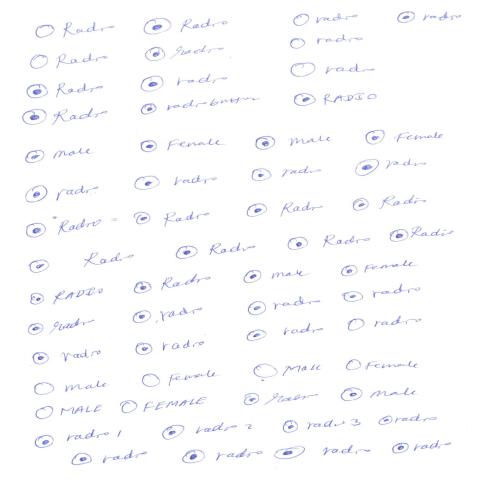 Radio Radio radio radio
Radio Radio radio
Radio radio radio
Radio radio button RADIO
male Female male Female
radio radio radio radio
Radio Radio Radio Radio
Radio Radio Radio Radio
RADIO Radio male Female
Radio radio radio radio
radio radio radio radio
male Female Male Female
MALE FEMALE Male male
radio 1 radio 2 radio 3 radio
radio radio radio radio